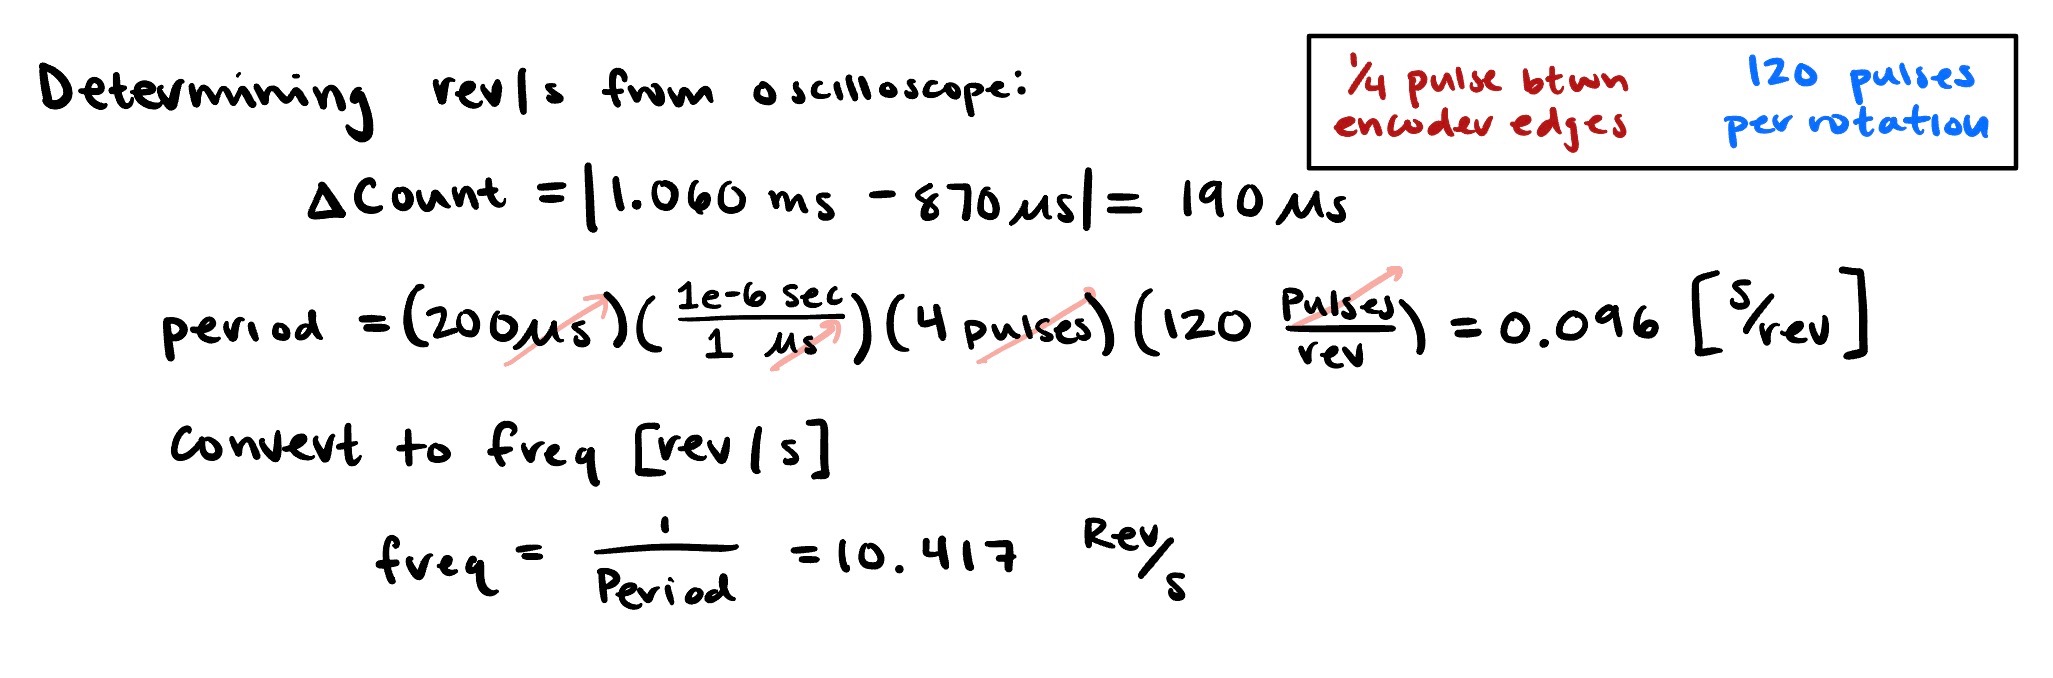 Determining rev/s from oscilloscope:
1/4 pulse btwn encoder edges
120 pulses per rotation
Δ Count = |1.060 ms - 870 μs| = 190 μs
period = (200 μs)(1e-6 sec / 1 μs)(4 pulses)(120 pulses/rev) = 0.096 [s/rev]
convert to freq [rev/s]
freq = 1/Period = 10.417 Rev/s